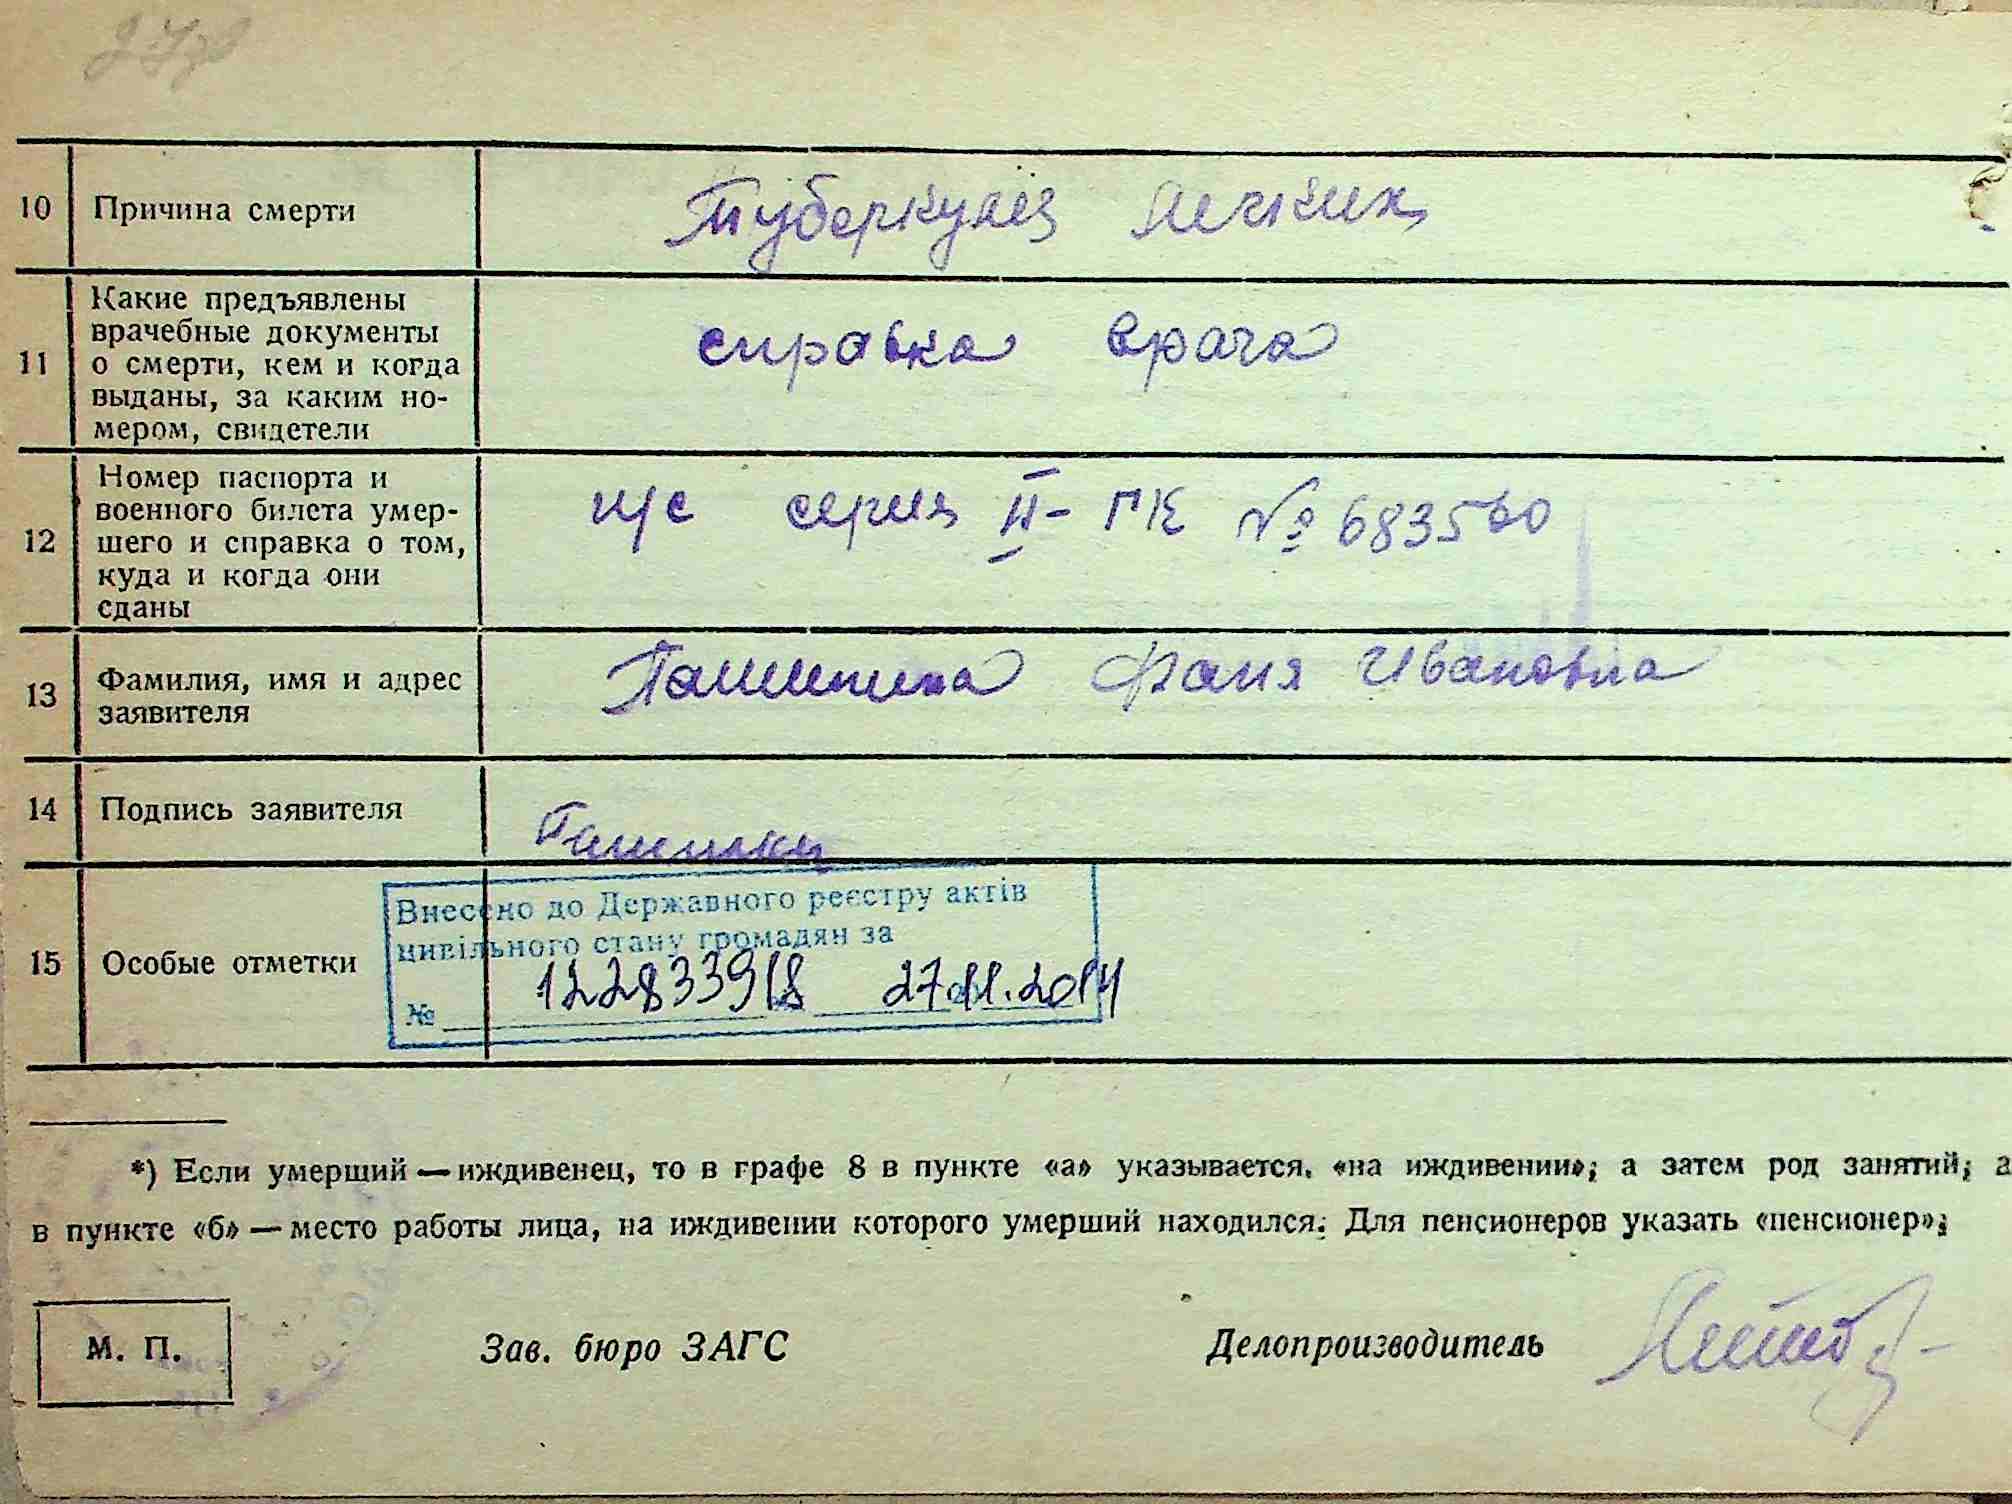 10 Причина смерти Туберкулез легких
11 Какие предъявлены
врачебные документы
о смерти, кем и когда
выданы, за каким но-
мером, свидетели
справка врача
12 Номер паспорта и
военного билета умер-
шего и справка о том,
куда и когда они
сданы
п/с серия II-ГК № 683560
13 Фамилия, имя и адрес
заявителя
Пашинина Фаня Ивановна
14 Подпись заявителя
15 Особые отметки
Внесено до Державного реєстру актів
цивільного стану громадян за
№ 122833918 27.11.2014
*) Если умерший — иждивенец, то в графе 8 в пункте «а» указывается. «на иждивении»; а затем род занятий; а
в пункте «б» — место работы лица, на иждивении которого умерший находился. Для пенсионеров указать «пенсионер»;
М. П. Зав. бюро ЗАГС Делопроизводитель